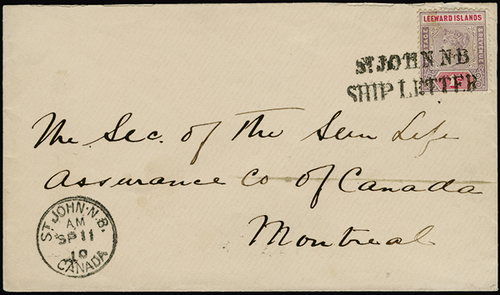 LEEWARD ISLANDS
ST JOHN N.B
SHIP LETTER
The Sec. of the Sun Life
Assurance Co of Canada
Montreal
ST. JOHN. N.B.
AM
SP 11
19
CANADA